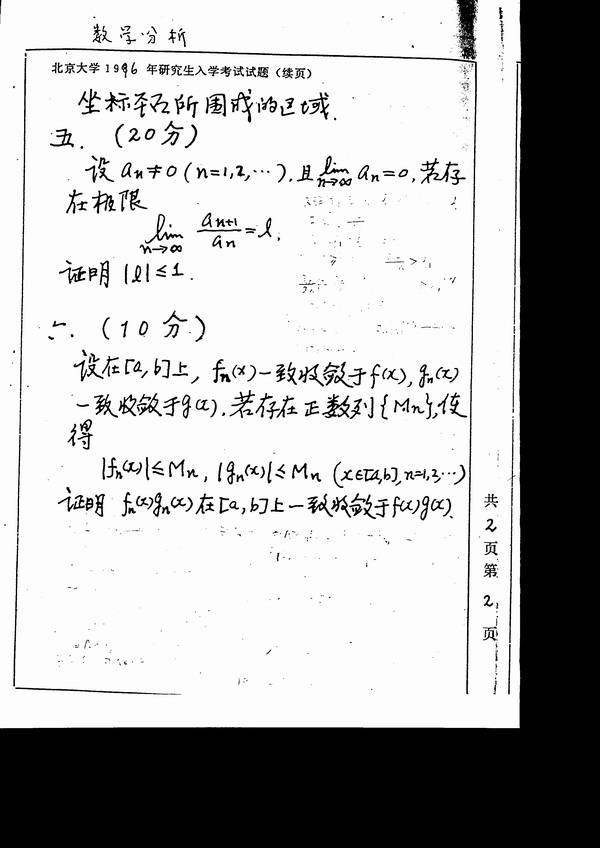 数学分析
北京大学1996年研究生入学考试试题（续页）
坐标平面所围成的区域.
五. (20分)
设 aₙ≠0 (n=1,2,…), 且 lim_{n→∞} aₙ=0, 若存
在极限
lim_{n→∞} aₙ₊₁/aₙ = l,
证明 |l|≤1.
六. (10分)
设在[a,b]上, fₙ(x)一致收敛于f(x), gₙ(x)
一致收敛于g(x). 若存在正数列{Mₙ},使
得
|fₙ(x)|≤Mₙ, |gₙ(x)|≤Mₙ (x∈[a,b], n=1,2,…)
证明 fₙ(x)gₙ(x)在[a,b]上一致收敛于f(x)g(x).
共2页第2页